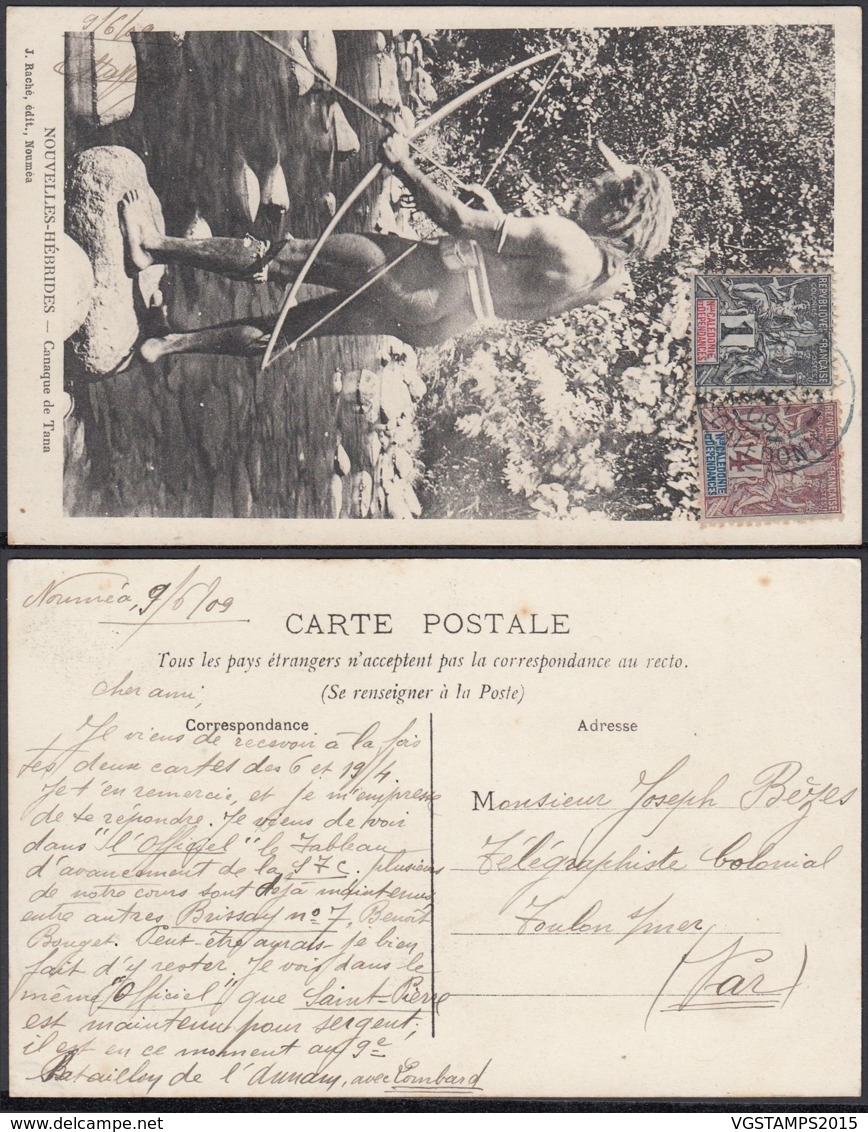 9/6/09
J. Raché, édit., Nouméa
NOUVELLES-HÉBRIDES — Canaque de Tana
REPUBLIQUE FRANÇAISE
COLONIES
POSTES
1
Nlle CALÉDONIE
ET DÉPENDANCES
REPUBLIQUE FRANÇAISE
4
Nlle CALÉDONIE
ET DÉPENDANCES
Nouméa, 9/6/09
CARTE POSTALE
Tous les pays étrangers n'acceptent pas la correspondance au recto.
(Se renseigner à la Poste)
Cher ami,
Correspondance
Je viens de recevoir à la fois
tes deux cartes des 6 et 19/4
Je t'en remercie, et je m'empresse
de te répondre. Je viens de voir
dans "l'Officiel" le Tableau
d'avancement de la STC. plusieurs
de notre cours sont déjà maintenus
entre autres Brissay no 7, Benoît
Bouget. Peut-être aurais-je bien
fait d'y rester. Je vois dans le
même "Officiel" que Saint-Pierre
est maintenu pour sergent;
il est en ce moment au 9e
Bataillon de l'Annam, avec Lombard
Adresse
Monsieur Joseph Bèzes
Télégraphiste Colonial
Toulon s/mer
(Var)
VGSTAMPS2015